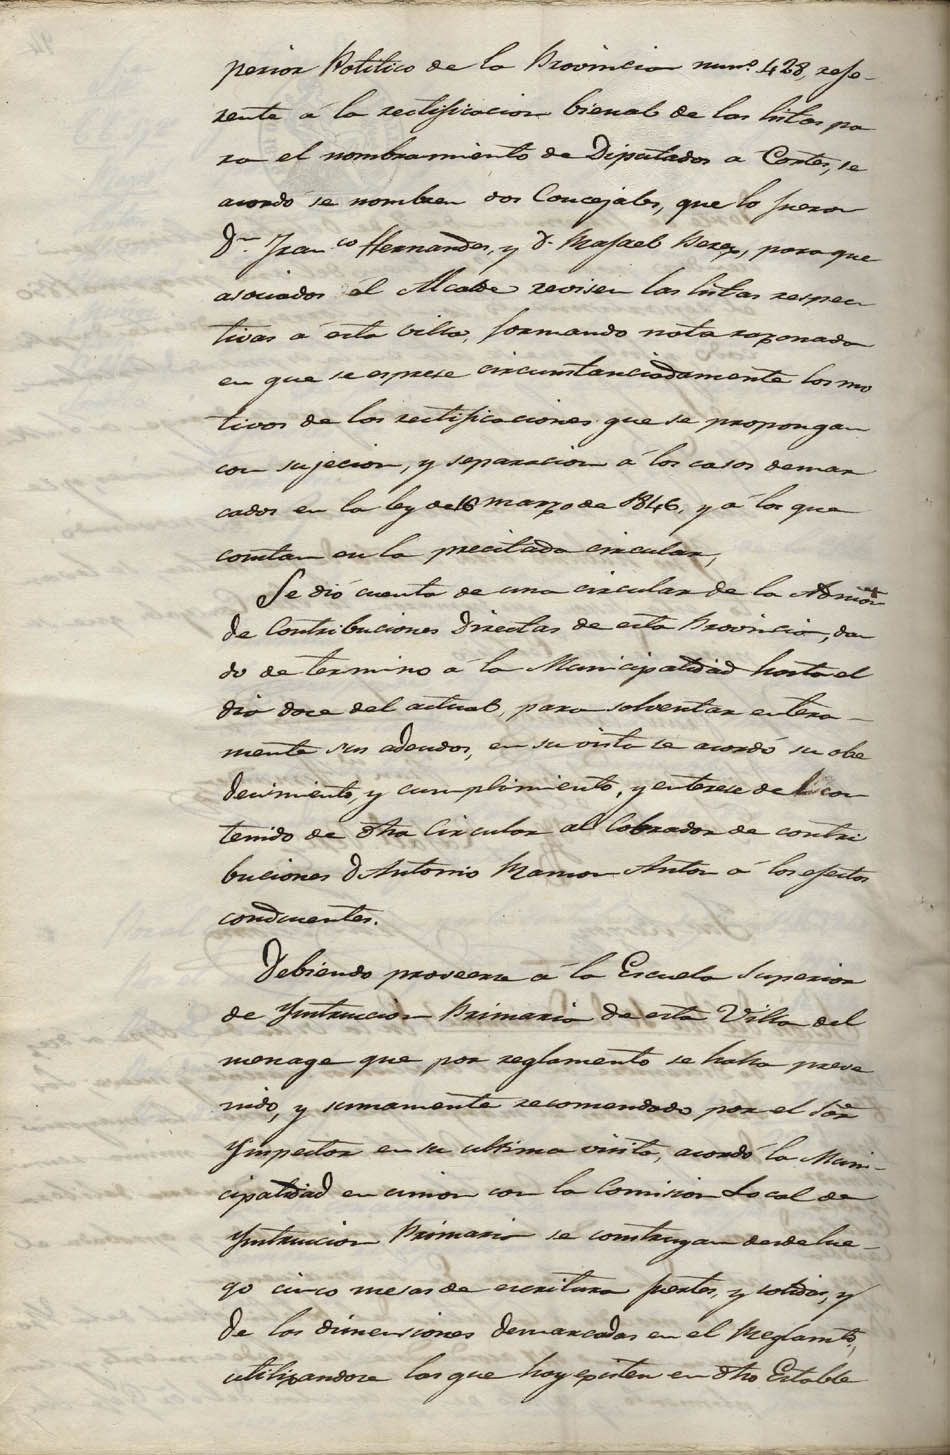 perior Politico de la Provincia num.º 428, refe-
rente á la rectificacion bienal de las listas pa
ra el nombramiento de Diputados a Cortes, se
acordó se nombren dos Concejales, que lo fueron
Dn. Fran.co Hernandes, y D. Rafael Perez, para que
asociados al Alcalde revisen las listas respec
tivas a esta villa, formando nota razonada
en que se esprese circunstanciadamente los mo
tivos de las rectificaciones que se propongan
con sujecion, y separacion á los casos demar
cados en la ley de 18 marzo de 1846, y a los que
constan en la precitada circular,
Se dió cuenta de una circular de la Admon
de Contribuciones Directas de esta Provincia, dan
do de termino a la Municipalidad hasta el
dia doce del actual, para solventar entera-
mente sus adeudos, en su vista se acordó su obe
decimiento, y cumplimiento, y enterese del con
tenido de dha Circular al Cobrador de contri
buciones D. Antonio Ramon Anton á los efectos
conducentes.
Debiendo proveerse á la Escuela Superior
de Ynstruccion Primaria de esta Villa del
menage que por reglamento se halla preve
nido, y sumamente recomendado por el Sor
Ynspector en su ultima visita, acordó la Muni-
cipalidad en union con la Comision Local de
Ynstruccion Primaria se construyan desde lue-
go cinco mesas de escritura fuertes, y solidas, y
de las dimensiones demarcadas en el Reglamto,
utilizandose las que hoy existen en dho Estable